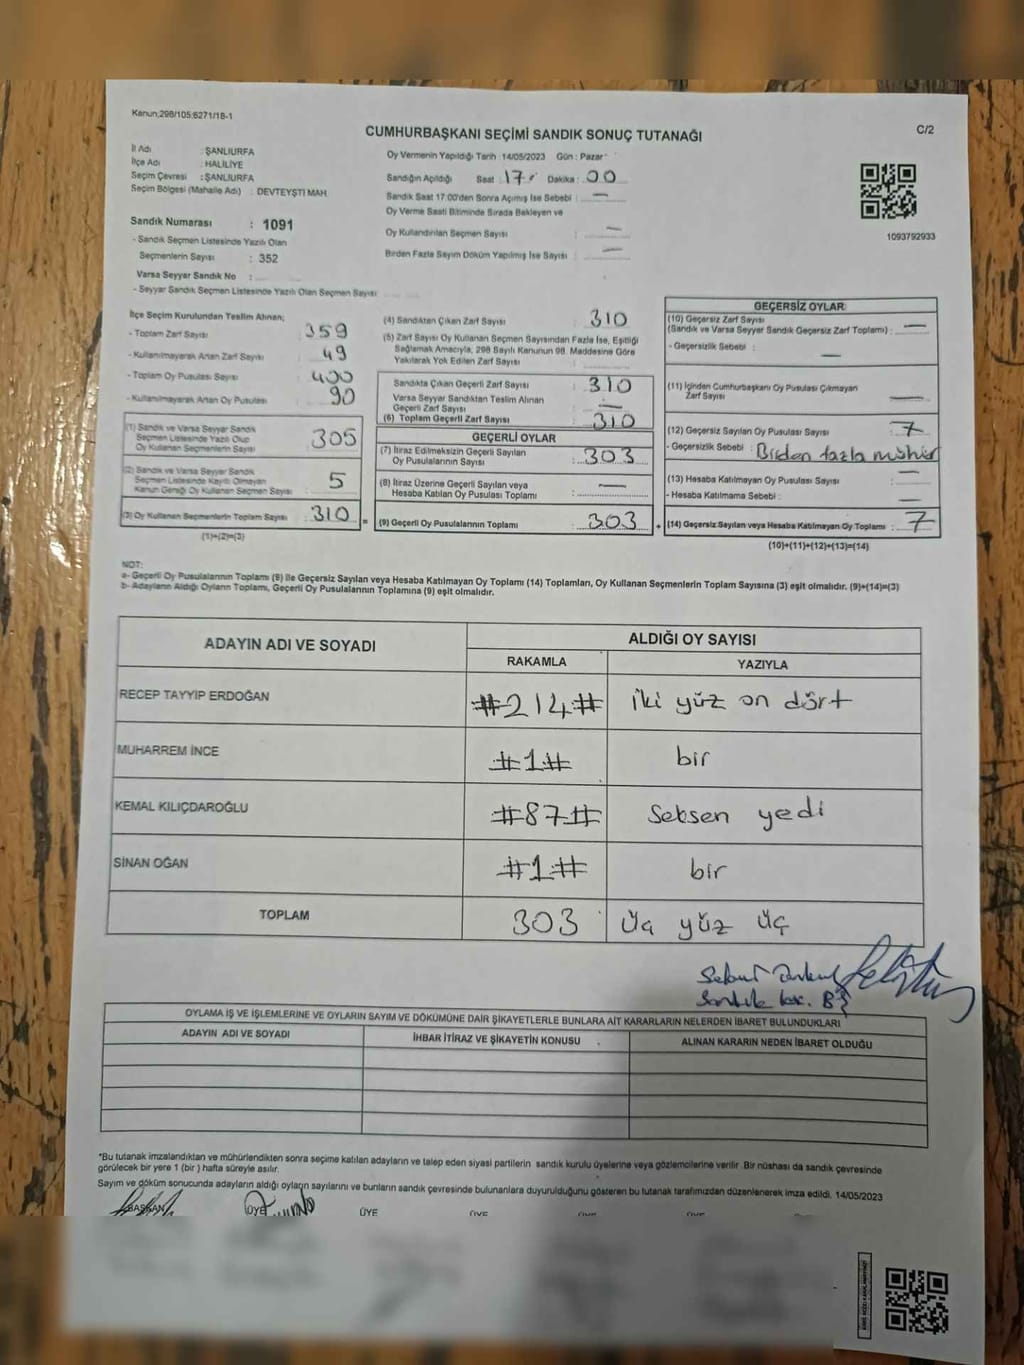 Kanun;298/105;6271/18-1
CUMHURBAŞKANI SEÇİMİ SANDIK SONUÇ TUTANAĞI
C/2
İl Adı : ŞANLIURFA
İlçe Adı : HALİLİYE
Seçim Çevresi : ŞANLIURFA
Seçim Bölgesi (Mahalle Adı) : DEVTEYŞTI MAH.
Sandık Numarası : 1091
- Sandık Seçmen Listesinde Yazılı Olan
Seçmenlerin Sayısı : 352
Varsa Seyyar Sandık No :
- Seyyar Sandık Seçmen Listesinde Yazılı Olan Seçmen Sayısı:
Oy Vermenin Yapıldığı Tarih : 14/05/2023 Gün : Pazar
Sandığın Açıldığı Saat : 17 Dakika : 00
Sandık Saat 17:00'den Sonra Açımış İse Sebebi : —
Oy Verme Saati Bitiminde Sırada Bekleyen ve
Oy Kullandırılan Seçmen Sayısı : —
Birden Fazla Sayım Döküm Yapılmış İse Sayısı : —
1093792933
İlçe Seçim Kurulundan Teslim Alınan;
- Toplam Zarf Sayısı : 359
- Kullanılmayarak Artan Zarf Sayısı : 49
- Toplam Oy Pusulası Sayısı : 400
- Kullanılmayarak Artan Oy Pusulası : 90
(1) Sandık ve Varsa Seyyar Sandık
Seçmen Listesinde Yazılı Olup
Oy Kullanan Seçmenlerin Sayısı : 305
(2) Sandık ve Varsa Seyyar Sandık
Seçmen Listesinde Kayıtlı Olmayan
Kanun Gereği Oy Kullanan Seçmen Sayısı : 5
(3) Oy Kullanan Seçmenlerin Toplam Sayısı : 310
(1)+(2)=(3)
(4) Sandıktan Çıkan Zarf Sayısı : 310
(5) Zarf Sayısı Oy Kullanan Seçmen Sayısından Fazla İse, Eşitliği
Sağlamak Amacıyla; 298 Sayılı Kanunun 98. Maddesine Göre
Yakılarak Yok Edilen Zarf Sayısı :
Sandıkta Çıkan Geçerli Zarf Sayısı : 310
Varsa Seyyar Sandıktan Teslim Alınan
Geçerli Zarf Sayısı : —
(6) Toplam Geçerli Zarf Sayısı : 310
GEÇERLİ OYLAR
(7) İtiraz Edilmeksizin Geçerli Sayılan
Oy Pusulalarının Sayısı : 303
(8) İtiraz Üzerine Geçerli Sayılan veya
Hesaba Katılan Oy Pusulası Toplamı : —
= (9) Geçerli Oy Pusulalarının Toplamı : 303 +
GEÇERSİZ OYLAR
(10) Geçersiz Zarf Sayısı
(Sandık ve Varsa Seyyar Sandık Geçersiz Zarf Toplamı) : —
- Geçersizlik Sebebi : —
(11) İçinden Cumhurbaşkanı Oy Pusulası Çıkmayan
Zarf Sayısı : —
(12) Geçersiz Sayılan Oy Pusulası Sayısı : 7
- Geçersizlik Sebebi : Birden fazla mühür
(13) Hesaba Katılmayan Oy Pusulası Sayısı : —
- Hesaba Katılmama Sebebi : —
(14) Geçersiz Sayılan veya Hesaba Katılmayan Oy Toplamı : 7
(10)+(11)+(12)+(13)=(14)
NOT:
a- Geçerli Oy Pusulalarının Toplamı (9) ile Geçersiz Sayılan veya Hesaba Katılmayan Oy Toplamı (14) Toplamları, Oy Kullanan Seçmenlerin Toplam Sayısına (3) eşit olmalıdır. (9)+(14)=(3)
b- Adayların Aldığı Oyların Toplamı, Geçerli Oy Pusulalarının Toplamına (9) eşit olmalıdır.
ADAYIN ADI VE SOYADI
ALDIĞI OY SAYISI
RAKAMLA YAZIYLA
RECEP TAYYİP ERDOĞAN #214# iki yüz on dört
MUHARREM İNCE #1# bir
KEMAL KILIÇDAROĞLU #87# Seksen yedi
SİNAN OĞAN #1# bir
TOPLAM 303 Üç yüz üç
OYLAMA İŞ VE İŞLEMLERİNE VE OYLARIN SAYIM VE DÖKÜMÜNE DAİR ŞİKAYETLERLE BUNLARA AİT KARARLARIN NELERDEN İBARET BULUNDUKLARI
ADAYIN ADI VE SOYADI İHBAR İTİRAZ VE ŞİKAYETİN KONUSU ALINAN KARARIN NEDEN İBARET OLDUĞU
*Bu tutanak imzalandıktan ve mühürlendikten sonra seçime katılan adayların ve talep eden siyasi partilerin sandık kurulu üyelerine veya gözlemcilerine verilir. Bir nüshası da sandık çevresinde
görülecek bir yere 1 (bir) hafta süreyle asılır.
Sayım ve döküm sonucunda adayların aldığı oyların sayılarını ve bunların sandık çevresinde bulunanlara duyurulduğunu gösteren bu tutanak tarafımızdan düzenlenerek imza edildi. 14/05/2023
BAŞKAN ÜYE ÜYE ÜYE ÜYE ÜYE